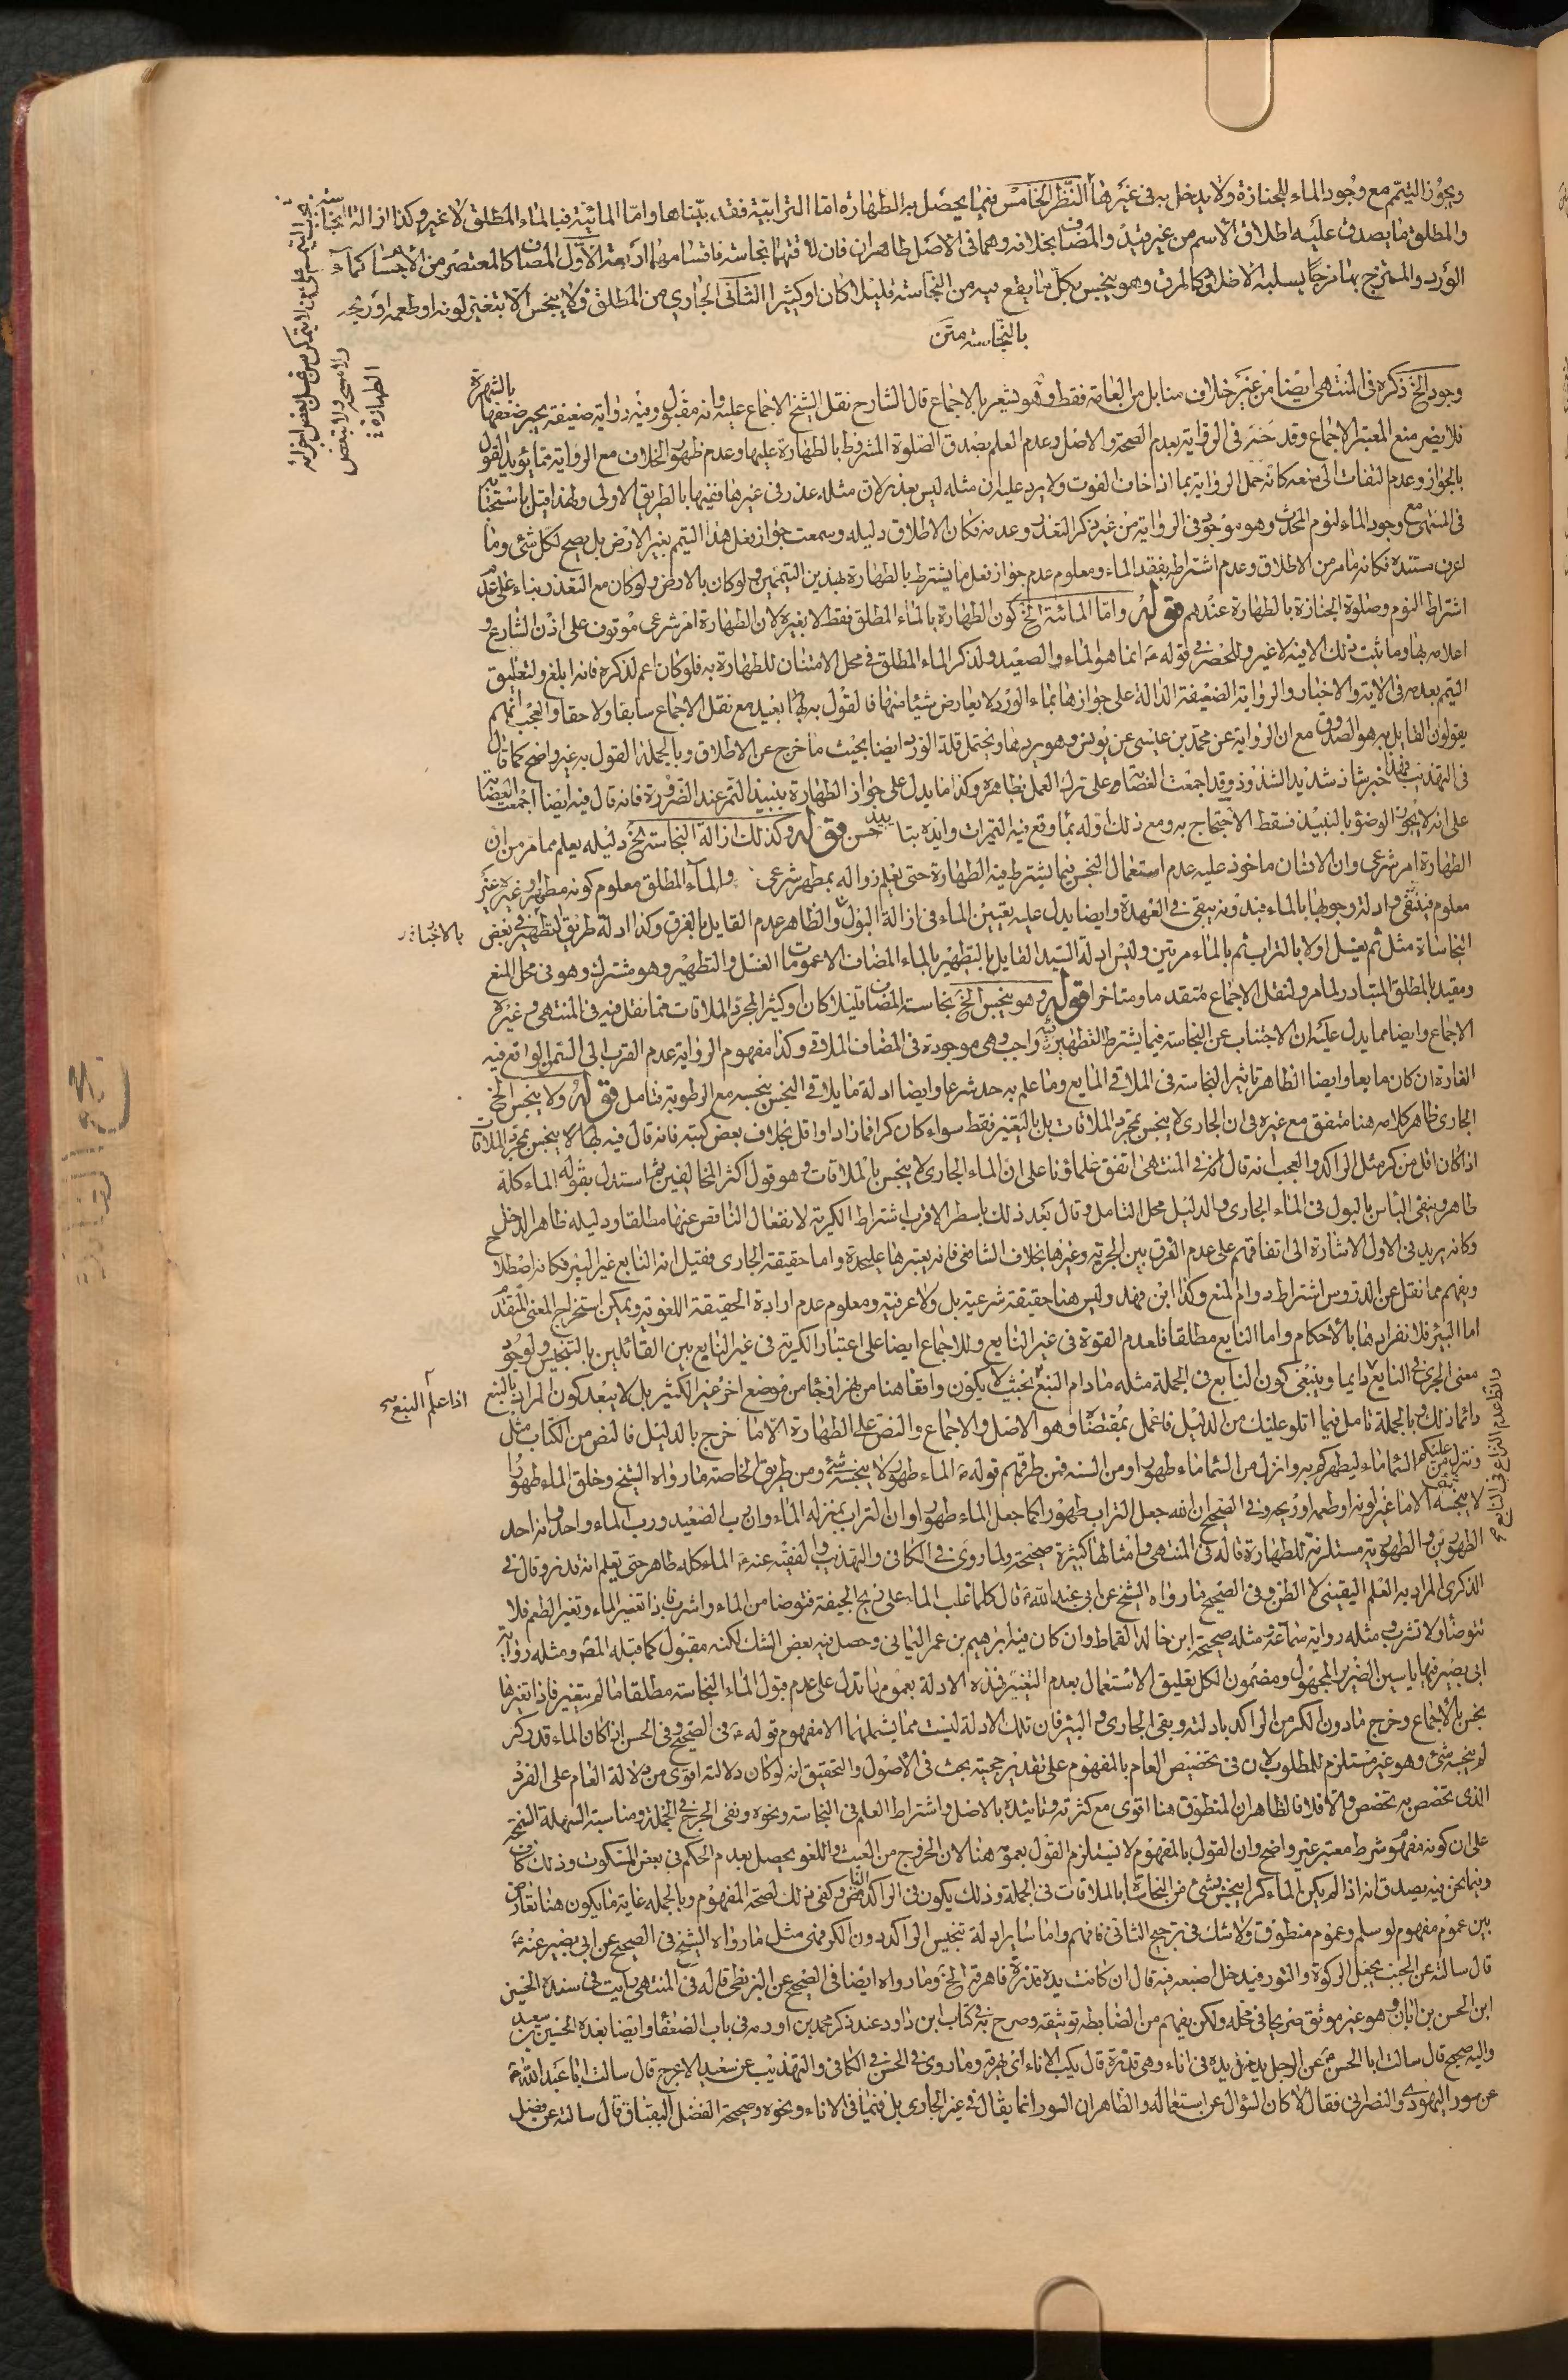 ويجوز التيمم مع وجود الماء للجنازة ولا يدخل به في غيرها النظر الخامس فيما يحصل به الطهارة اما الترابية فقد بيناها واما المائية فبالماء المطلق لا غير وكذا ازالة النجاسة
والمطلق ما يصدق عليه اطلاق الاسم من غير قيد والمضاف بخلافه وهما في الاصل طاهران فان لاقتهما نجاسة فاقسامهما اربعة الاول المضاف كالمعتصر من الاجسام كماء
الورد والممتزج بها مزجا يسلبه الاطلاق كالمرق وهو ينجس بكل ما يقع فيه من النجاسة قليلا كان او كثيرا الثاني الجاري من المطلق ولا ينجس الا بتغير لونه او طعمه او ريحه
بالنجاسة متن
وجود الخ ذكره في المنتهى ايضا من غير خلاف منا بل من العامة فقط وهو يشعر بالاجماع قال الشارح نقل الشيخ الاجماع عليه وانه مقبول وفيه رواية ضعيفة يجبر ضعفها بالشهرة
فلا يضر منع المعتبر الاجماع وقد في الرواية بعدم الصحة والاصل وعدم العلم بصدق الصلوة المشروط بالطهارة عليها وعدم ظهور الخلاف مع الرواية مما يؤيد القول
بالجواز وعدم التفات الى منعه كانه حمل الرواية بما اذا خاف الفوت ولا يرد عليه ان مثله ليس بعذر لان مثله عذر في غيرها ففيها بالطريق الاولى ولهذا قيل باستحبابه
في المشهور مع وجود الماء لنوم المحدث وهو موجود في الرواية من غير ذكر التعذر وعدمه فكان الاطلاق دليله وسمعت جواز فعل هذا التيمم بغير الارض بل يصح لكل شئ وما
اعرف مستنده فكانه ما مر من الاطلاق وعدم اشتراطه بفقد الماء ومعلوم عدم جواز فعل ما يشترط بالطهارة بهذين التيممين ولو كان بالارض ولو كان مع التعذر بناء على عدم
اشتراط النوم وصلوة الجنازة بالطهارة عندهم قوله واما المائية الخ كون الطهارة بالماء المطلق فقط لا بغيره لان الطهارة امر شرعي موقوف على اذن الشارع و
اعلامه بها وما ثبت ذلك الا فيه لا غير وللحصر في قوله ع انما هو الماء والصعيد ولذكر الماء المطلق في محل الامتنان للطهارة به فلو كان اعم لذكره فانه ابلغ ولتعليق
التيمم بعدمه في الاية والاخبار والرواية الضعيفة الدالة على جوازها بماء الورد لا يعارض شيئا منها فالقول به بعيد مع نقل الاجماع سابقا ولاحقا والعجب انهم
يقولون القايل به هو الصدوق مع ان الرواية عن محمد بن عيسى عن يونس وهو يردها ويحتمل قلة الورد ايضا بحيث ما خرج عن الاطلاق وبالجملة القول به غير واضح كما قال
في التهذيب فهذا خبر شاذ شديد الشذوذ وقد اجمعت العصابة على ترك العمل بظاهره وكذا ما يدل على جواز الطهارة بنبيذ التمر عند الضرورة فانه قال فيه ايضا اجمعت العصابة
على انه لا يجوز الوضوء بالنبيذ فسقط الاحتجاج به ومع ذلك اوله بما وقع فيه التميرات حسن قوله وكذلك ازالة النجاسة الخ دليله يعلم مما مر من ان
الطهارة امر شرعي وان الانسان ماخوذ عليه عدم استعمال النجس فيما يشترط فيه الطهارة حتى يعلم زواله بمطهر شرعي والماء المطلق معلوم كونه مطهرا وغيره غير
معلوم فينتفي وادلة وجوبها بالماء فبدونه يبقى في العهدة وايضا يدل عليه تعيين الماء في ازالة البول والظاهر عدم القايل بالفرق وكذا ادلة طريق التطهير في بعض بالاخبار
النجاسات مثل ثم يغسل اولا بالتراب ثم بالماء مرتين وليس ادلة السيد القايل بالتطهير بالماء المضاف الا عمومات الغسل والتطهير وهو مشترك وهو في محل المنع
ومقيد بالمطلق المتبادر لما مر ولنقل الاجماع متقدما ومتاخرا قوله وهو ينجس الخ نجاسة المضاف قليلا كان او كثيرا لمجرد الملاقات مما نقل فيه في المنتهى وغيره
الاجماع وايضا مما يدل عليه ان الاجتناب عن النجاسة فيما يشترط التطهير فيه واجب وهي موجودة في المضاف الملاقي وكذا مفهوم الرواية عدم القرب الى السمن الواقع فيه
الفارة ان كان مايعا وايضا الظاهر تاثير النجاسة في الملاقي المايع وما علم به حد شرعا وايضا ادلة ما يلاقي النجس ينجسه مع الرطوبة فتامل قوله ولا ينجس الخ
الجاري ظاهر كلامه هنا متفق مع غيره في ان الجاري لا ينجس بمجرد الملاقات بل بالتغير فقط سواء كان كرا فما زاد او اقل بخلاف بعض كتبه فانه قال فيه بانه ينجس بمجرد الملاقات
اذا كان اقل من كر مثل الراكد والعجب انه قال في المنتهى اتفق علماؤنا على ان الماء الجاري لا ينجس بالملاقات وهو قول اكثر المخالفين ثم استدل بقوله الماء كله
طاهر وبنفي الباس بالبول في الماء الجاري والدليل محل التامل وقال بعد ذلك باسطر الاقرب اشتراط الكرية لانفعال الناقص عنها مطلقا ودليله ظاهر الدخل
وكانه يريد في الاول الاشارة الى اتفاقهم على عدم الفرق بين الجرية وغيرها بخلاف الشافعي فانه يعتبرها عليحدة واما حقيقة الجاري فقيل انه النابع غير البئر فكانه اصطلاح
ويفهم مما نقل عن الدروس اشتراط دوام النبع وكذا ابن فهد وليس هنا حقيقة شرعية بل ولا عرفية ومعلوم عدم ارادة الحقيقة اللغوية ويمكن استخراج المعنى المقدم
اما البئر فلانفرادها بالاحكام واما النابع مطلقا فلعدم القوة في غير النابع وللاجماع ايضا على اعتبار الكرية في غير النابع بين القائلين بالتنجيس ولوجود
معنى الجري في النابع دايما وينبغي كون النابع في الجملة مثله ما دام النبع بحيث لا يكون واقفا هنا من موضع اخر غير الكثير بل لا يبعد كون المراد بالنبع اذا علم النبع
دائما ذلك وبالجملة تامل فيما اتلو عليك من الدليل فاعمل بمقتضاه وهو الاصل والاجماع والنص على الطهارة الا ما خرج بالدليل فالنص من الكتاب مثل
وينزل عليكم من السماء ماء ليطهركم به وانزل من السماء ماء طهورا ومن السنة فمن طرقهم قوله ع الماء طهور لا ينجسه شئ ومن طريق الخاصة ما رواه الشيخ وخلق الماء طهورا
لا ينجسه شئ الا ما غير لونه او طعمه او ريحه وفي الصحيح ان الله جعل التراب طهورا كما جعل الماء طهورا وان التراب بمنزلة الماء وان رب الصعيد ورب الماء واحد وانه احد
الطهورين والطهورية مستلزمة للطهارة قاله في المنتهى وامثالها كثيرة صحيحة ولما روى في الكافي والتهذيب والفقيه عنه ع الماء كله طاهر حتى يعلم انه قذر وقال في
الذكرى المراد به العلم اليقيني لا الظن وفي الصحيح ما رواه الشيخ عن ابي عبد الله ع قال كلما غلب الماء على ريح الجيفة فتوضا من الماء واشرب فاذا تغير الماء وتغير الطعم فلا
تتوضا ولا تشرب ومثله رواية سماعة ومثله صحيحة ابن خالد القماط وان كان فيه ابرهيم بن عمر اليماني وحصل فيه بعض الشك لكنه مقبول كما قبله المصـ ومثله رواية
ابي بصير فيها ياسين الضرير المجهول ومضمون الكل تعليق الاستعمال بعدم التغير فهذه الادلة بعمومها تدل على عدم قبول الماء النجاسة مطلقا ما لم يتغير فاذا تغير بها
نجس بالاجماع وخرج ما دون الكر من الراكد بادلته وبقي الجاري والبئر فان تلك الادلة ليست مما يشملهما الا مفهوم قوله ع في الصحيح وفي الحسن اذا كان الماء قدر كر
لم ينجسه شئ وهو غير مستلزم للمطلوب لان في تخصيص العام بالمفهوم على تقدير حجيته بحث في الاصول والتحقيق انه لو كان دلالته اقوى من دلالة العام على الفرد
الذي تخصص به تخصص والا فلا فالظاهر ان المنطوق هنا اقوى مع كثرته وتاييده بالاصل واشتراط العلم في النجاسة ونحوه ونفي الحرج في الجملة ومناسبة السهلة السمحة
على ان كونه مفهوم شرط معتبر غير واضح وان القول بالمفهوم لا يستلزم القول بعمومه هنا لان الخروج من العبث واللغو يحصل بعدم الحكم في بعض المسكوت وذلك كاف
وفيما نحن فيه يصدق انه اذا لم يكن الماء كرا ينجس بشئ من النجاسة بالملاقات في الجملة وذلك يكون في الراكد الناقص وكفى ذلك لصحة المفهوم وبالجملة غاية ما يكون هنا تعارض
بين عموم مفهوم لو سلم وعموم منطوق ولا شك في ترجيح الثاني فافهم واما ساير ادلة تنجيس الراكد دون الكر فهي مثل ما رواه الشيخ في الصحيح عن ابي بصير عنه ع
قال سالته عن الجنب يجعل الركوة والتور فيدخل اصبعه فيه قال ان كانت يده قذرة فاهرقه الخ وما رواه ايضا في الصحيح عن البزنطي قاله في المنتهى رايت في سنده الحسين
ابن الحسن بن ابان وهو غير موثق صريحا في محله ولكن يفهم من الضابطة توثيقه وصرح به في كتاب ابن داود عند ذكر محمد بن اورمه في باب الضعفا وايضا بعده الحسين بن سعيد
واليه صحيح قال سالت ابا الحسن ع عن الرجل يدخل يده في اناء وهي قذرة قال يكب الاناء اي يهرقه وما روى في الحسن في الكافي والتهذيب عن سعيد الاعرج قال سالت ابا عبد الله ع
عن سور اليهودي والنصراني فقال لا كان السؤال عن استعماله والظاهر ان السور انما يقال في غير الجاري بل فيما في الاناء ونحوه وصحيحة الفضل البقباق قال سالته عن فضل